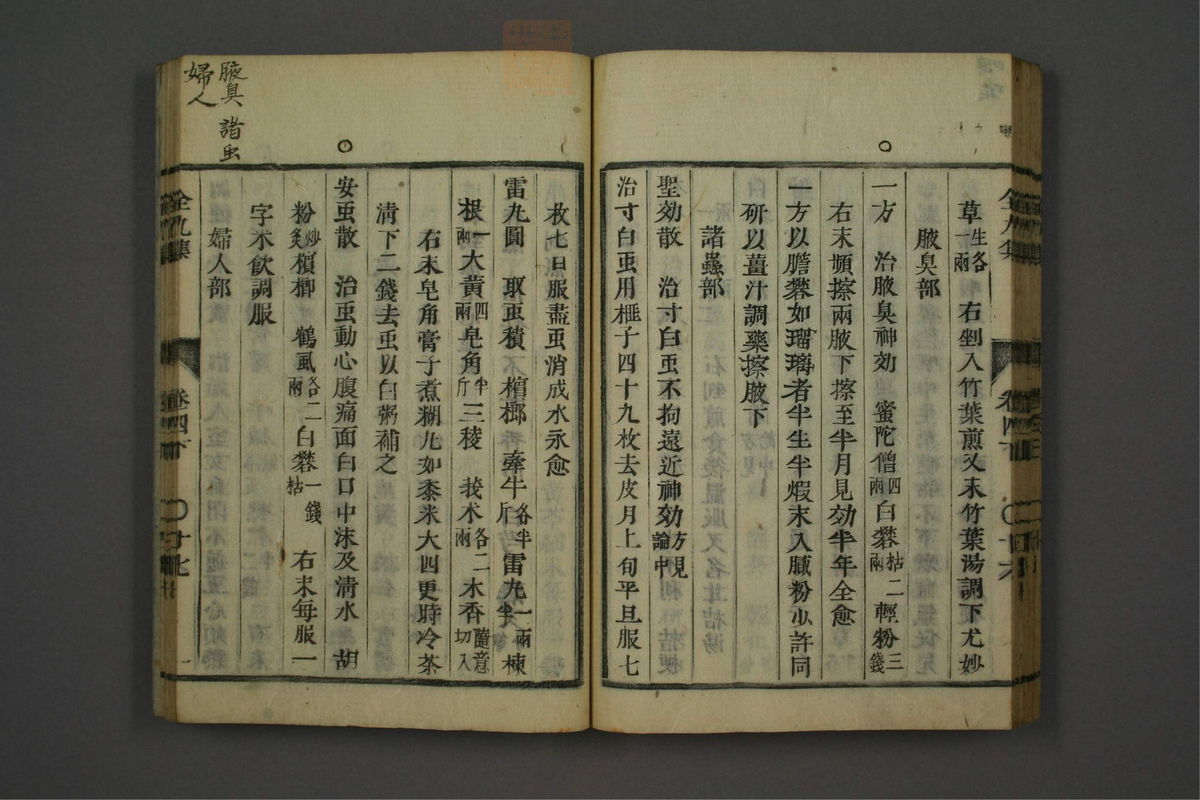 草生各一兩　右剉入竹葉煎又末竹葉湯調下尤妙
腋臭部
一方　治腋臭神効　蜜陀僧四兩白礬枯二兩輕粉三錢
右末頻擦兩腋下擦至半月見効半年全愈
一方以膽礬如瑠璃者半生半煆末入膩粉少許同
研以薑汁調藥擦腋下
諸蟲部
聖効散　治寸白虫不拘遠近神効方見論中
治寸白虫用榧子四十九枚去皮月上旬平旦服七
腋臭　諸虫
婦人
枚七日服盡虫消成水永愈
雷丸圓　取虫積　檳榔　牽牛各半斤雷丸一兩半楝
根一兩大黃四兩皂角半斤三稜　莪朮各二兩木香隨意切入
右末皂角膏子煮糊丸如黍米大四更時冷茶
淸下二錢去虫以白粥補之
安虫散　治虫動心腹痛面白口中沫及淸水　胡
粉炒炙檳榔　鶴虱各二兩白礬一錢枯　右末每服一
字米飮調服
婦人部
全九集
卷四下
十七